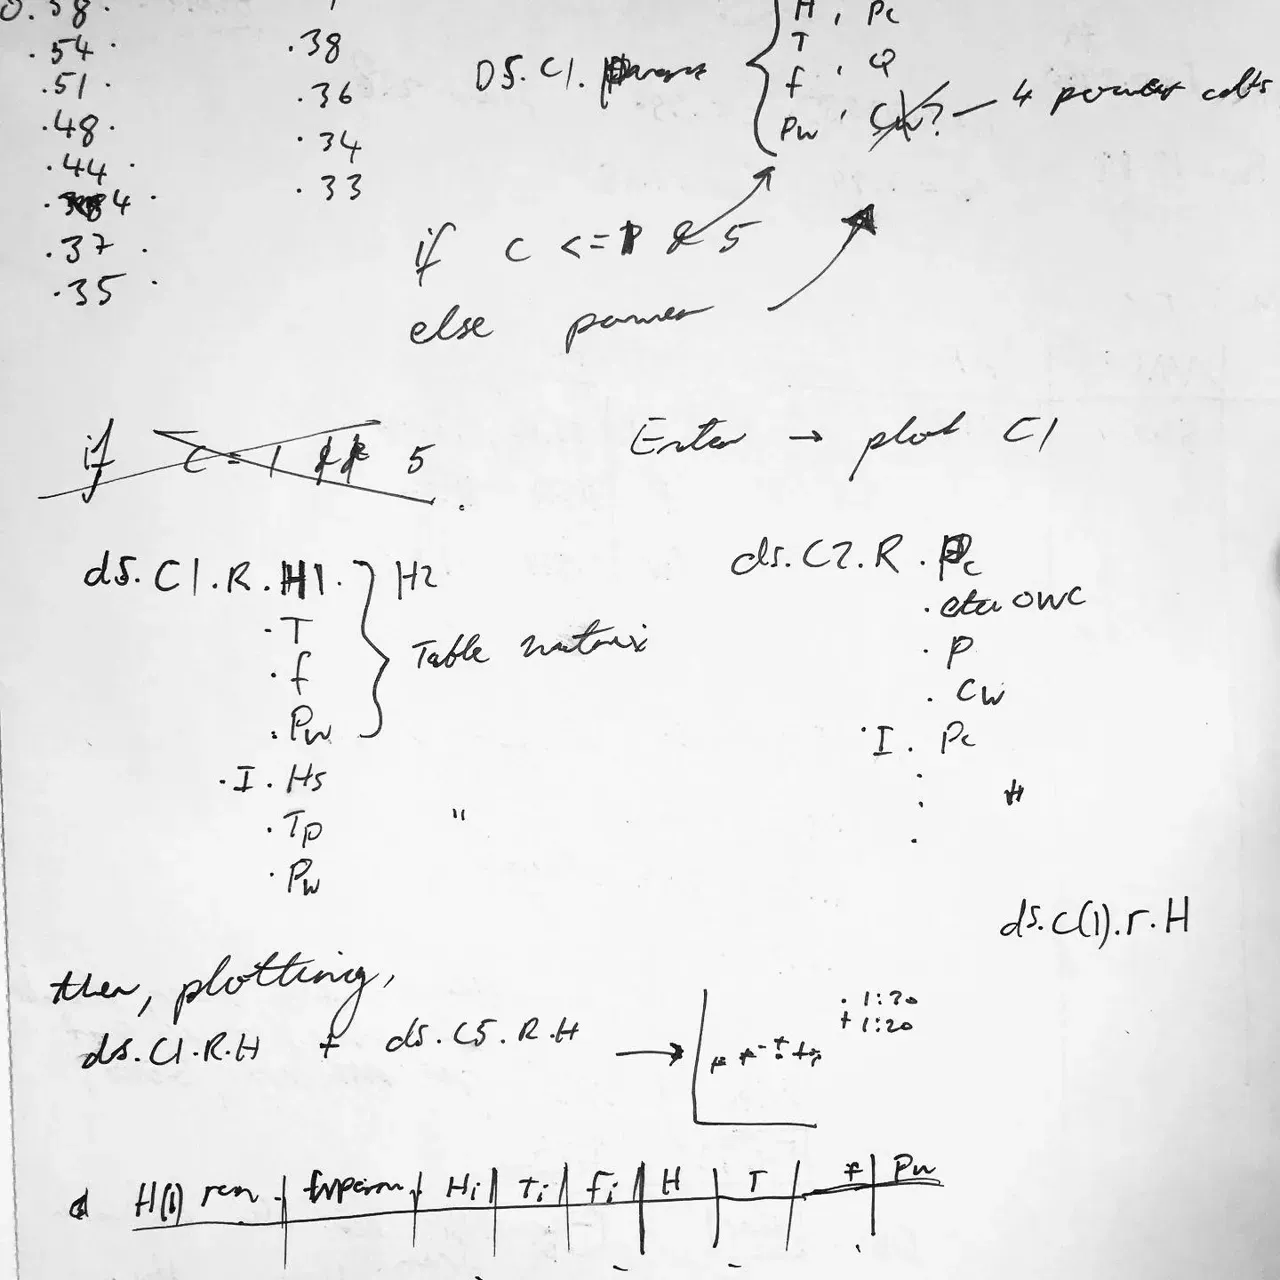 0.58.
.54 .
.51 .
.48 .
.44 .
4 .
.37 .
.35 .
.38
.36
.34
.33
DS. C1.
H , Pc
T
f , Q
Pw , Cw? — 4 power
if C <= 1 & 5
else power
if C = 1 && 5
Enter → plot C1
ds. C1 . R . H1 . } H2
. T
. f
. Pw
Table matrix
. I . Hs
. Tp "
. Pw
ds. C2. R . Pc
. eta OWC
. P
. Cw
. I . Pc
.
. "
.
ds.C(1).r.H
then, plotting,
ds.C1.R.H + ds.C5.R.H →
. 1:30
+ 1:20
H(1) run | | Hi | Ti | fi | H | T | f | Pw